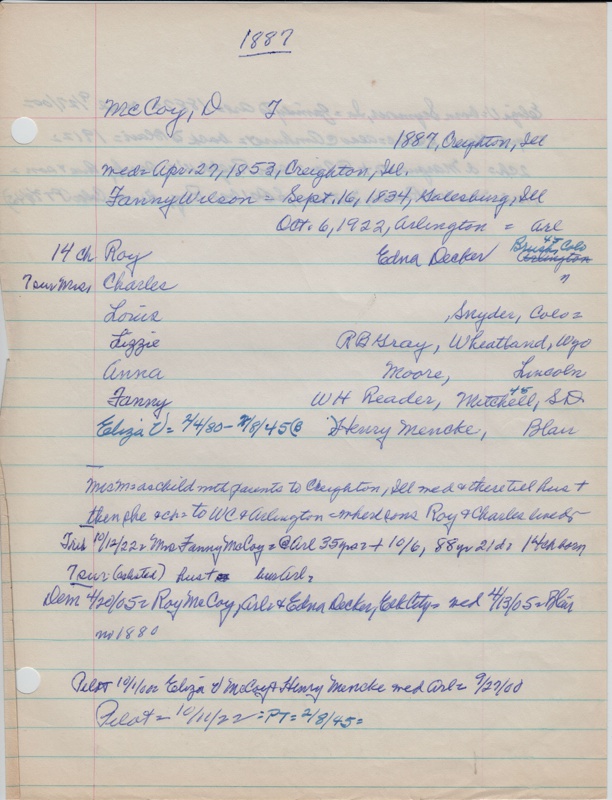 1887
McCoy, D T
1887, Creighton, Ill
med = Apr. 27, 1853, Creighton, Ill.
Fanny Wilson = Sept. 16, 1834, Galesburg, Ill
Oct. 6, 1922, Arlington = Arl
14 ch Roy Edna Decker Brush, Colo 45 Arlington
7 sur Mrs. Charles "
Louis , Snyder, Colo =
Lizzie RB Gray, Wheatland, Wyo
Anna Moore, Lincoln
Fanny WH Reader, Mitchell, SD 45
Eliza V = 2/4/80 - 2/8/45 @ Henry Mencke, Blair
Mrs M = as child with parents to Creighton, Ill med & there til hus +
then she & ch = to WC & Arlington = where sons Roy & Charles lived =
Trib 10/12/22 = Mrs Fanny McCoy = @ Arl 35 yrs = + 10/6, 88 yr 21 d = 14 ch born
7 sur (as listed) hus + bur Arl =
Dem 4/20/05 = Roy McCoy, Arl = & Edna Decker, Elk City = med 4/13/05 = Blair
no 1880
Pilot 10/11/00 = Eliza V McCoy & Henry Mencke med Arl = 9/27/00
Pilot = 10/11/22 = PT = 2/8/45 =